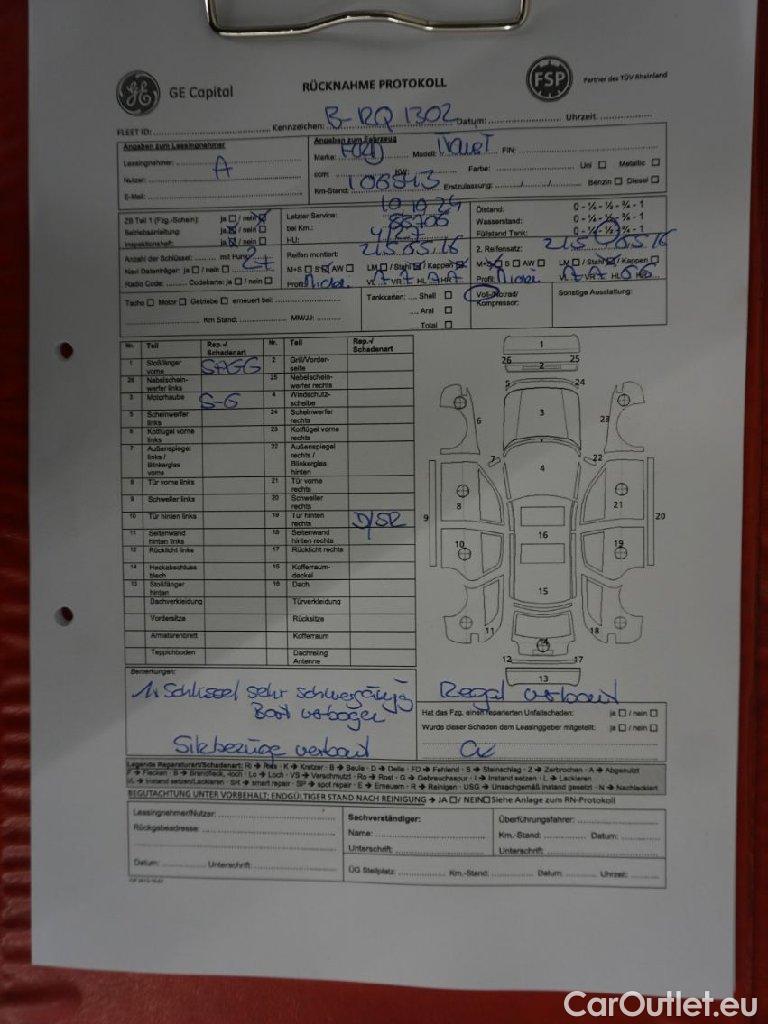 GE Capital
RÜCKNAHME PROTOKOLL
FSP
Partner des TÜV Rheinland
FLEET ID: Kennzeichen: B-RQ 1302 Datum: Uhrzeit:
Angaben zum Leasingnehmer
Leasingnehmer:
A
Nutzer:
E-Mail:
Angaben zum Fahrzeug
Marke: FORD Modell: FIN:
ccm: KW: Farbe: Uni Metallic
Km-Stand: Erstzulassung: Benzin Diesel
ZB Teil 1 (Fzg.-Schein): ja / nein
Betriebsanleitung ja / nein
Inspektionsheft: ja / nein
Letzter Service: 10.10.24
bei Km.: 88706
HU: 4/27
Ölstand: 0 - ¼ - ½ - ¾ - 1
Wasserstand: 0 - ¼ - ½ - ¾ - 1
Füllstand Tank: 0 - ¼ - ½ - ¾ - 1
Anzahl der Schlüssel: mit Funk:
Navi Datenträger: ja / nein
Radio Code: Codekarte: ja / nein
Reifen montiert: 215 65 16
M+S S AW LM / Stahl / Kappen
Profil VL VR HL HR
2. Reifensatz: 215 65 16
M+S S AW LM / Stahl / Kappen
Profil VL VR HL HR
Tacho Motor Getriebe erneuert bei:
Km Stand: MM/JJ:
Tankkarten: Shell
Aral
Total
Voll-/Notrad/
Kompressor:
Sonstige Ausstattung:
Nr. Teil Rep.-/ Schadenart Nr. Teil Rep.-/ Schadenart
1 Stoßfänger vorne 2 Grill/Vorderseite
26 Nebelscheinwerfer links 25 Nebelscheinwerfer rechts
3 Motorhaube S-G 4 Windschutzscheibe
5 Scheinwerfer links 24 Scheinwerfer rechts
6 Kotflügel vorne links 23 Kotflügel vorne rechts
7 Außenspiegel links / Blinkerglas vorne 22 Außenspiegel rechts / Blinkerglas hinten
8 Tür vorne links 21 Tür vorne rechts
9 Schweller links 20 Schweller rechts
10 Tür hinten links 19 Tür hinten rechts D/SR
11 Seitenwand hinten links 18 Seitenwand hinten rechts
12 Rücklicht links 17 Rücklicht rechts
14 Heckabschlussblech 15 Kofferraumdeckel
13 Stoßfänger hinten 16 Dach
Dachverkleidung Türverkleidung
Vordersitze Rücksitze
Armaturenbrett Kofferraum
Teppichboden Dachreling Antenne
1
26 25
2
5 24
3
6 23
7 22
4
8 21
9 20
16
10 19
15
11 18
14
12 17
13
Bemerkungen:
1x Schlüssel sehr schwergängig
Bart verbogen
Sitzbezüge verbaut
Regal verbaut
Hat das Fzg. einen reparierten Unfallschaden: ja / nein
Wurde dieser Schaden dem Leasinggeber mitgeteilt: ja / nein
BEGUTACHTUNG UNTER VORBEHALT; ENDGÜLTIGER STAND NACH REINIGUNG → JA / NEIN Siehe Anlage zum RN-Protokoll
Leasingnehmer/Nutzer:
Rückgabeadresse:
Datum: Unterschrift:
Sachverständiger:
Name:
Unterschrift:
Überführungsfahrer:
Km.-Stand: Datum:
Unterschrift:
ÜG Stellplatz: Km.-Stand: Datum: Uhrzeit:
CarOutlet.eu